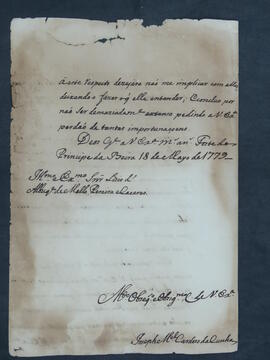 a este respeito dezejára não me implicar com elle,
deixando o fazer o que elle entender, Concluo por
não ser demaziadam.te extenso pedindo a V. Ex.ª
perdão de tantas importunaçoens
Deos g.e a V. Ex.ª m.s an.s Forte do
Principe da Beira 18 de Mayo de 1772
Ill.mo e Ex.mo Snr. Luiz de
Albuq.e de Mello Pereira e Caceres.
De V. Ex.ª
Joseph M.el Cardozo da Cunha